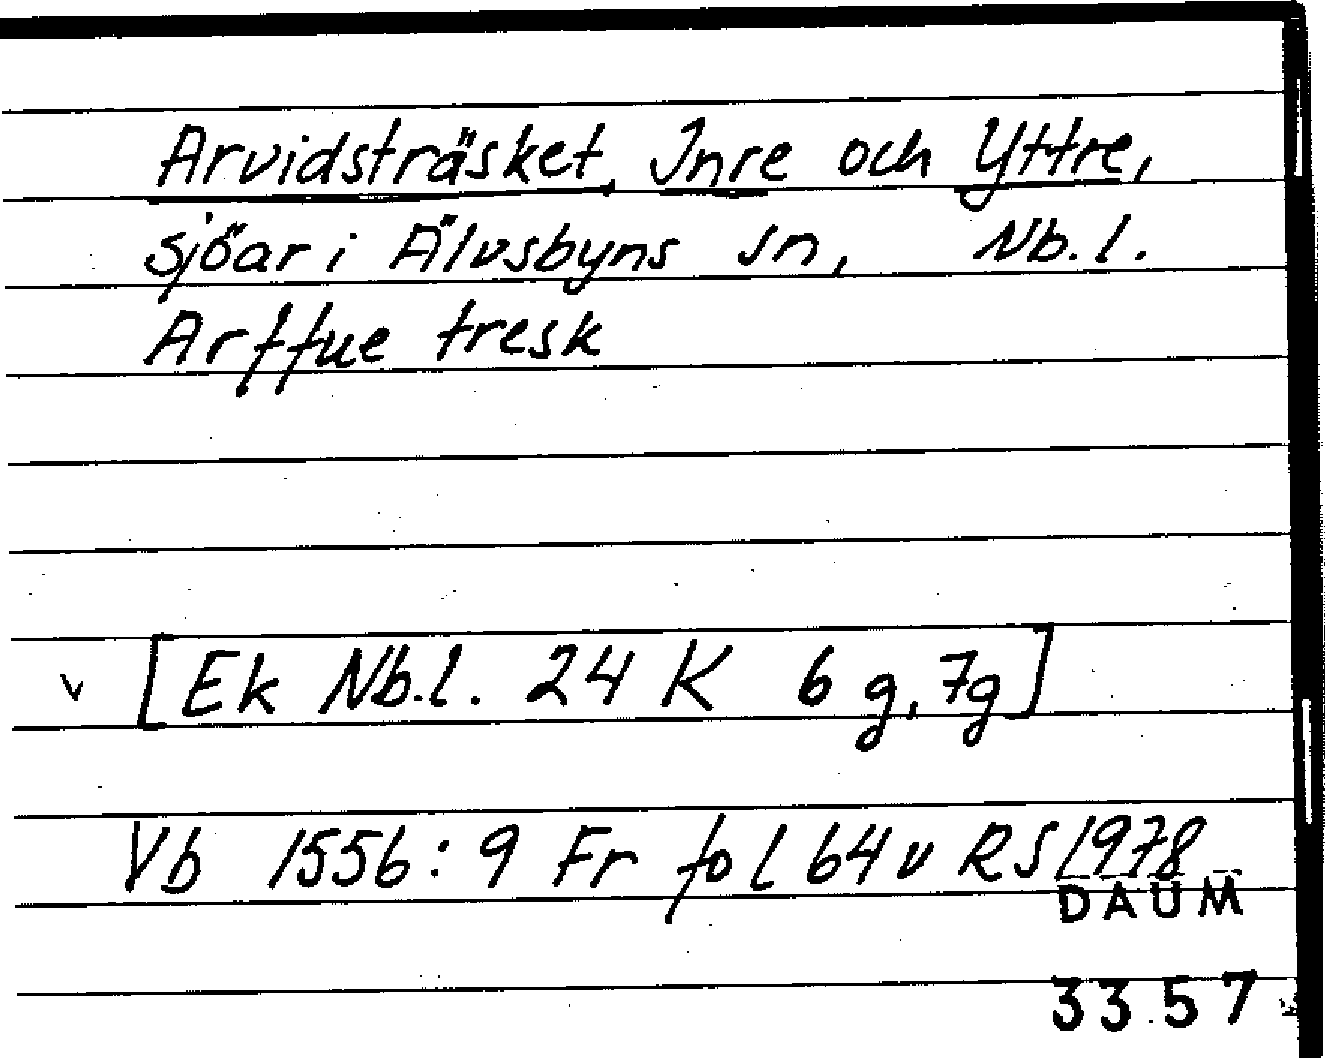 Arvidsträsket, Inre och Yttre,
sjöar i Älvsbyns sn, Nb.l.
Arffue tresk
v [Ek Nb.l. 24 K 6 g, 7g]
Vb 1556:9 Fr fol 64 v RS 1978
DAUM
3357